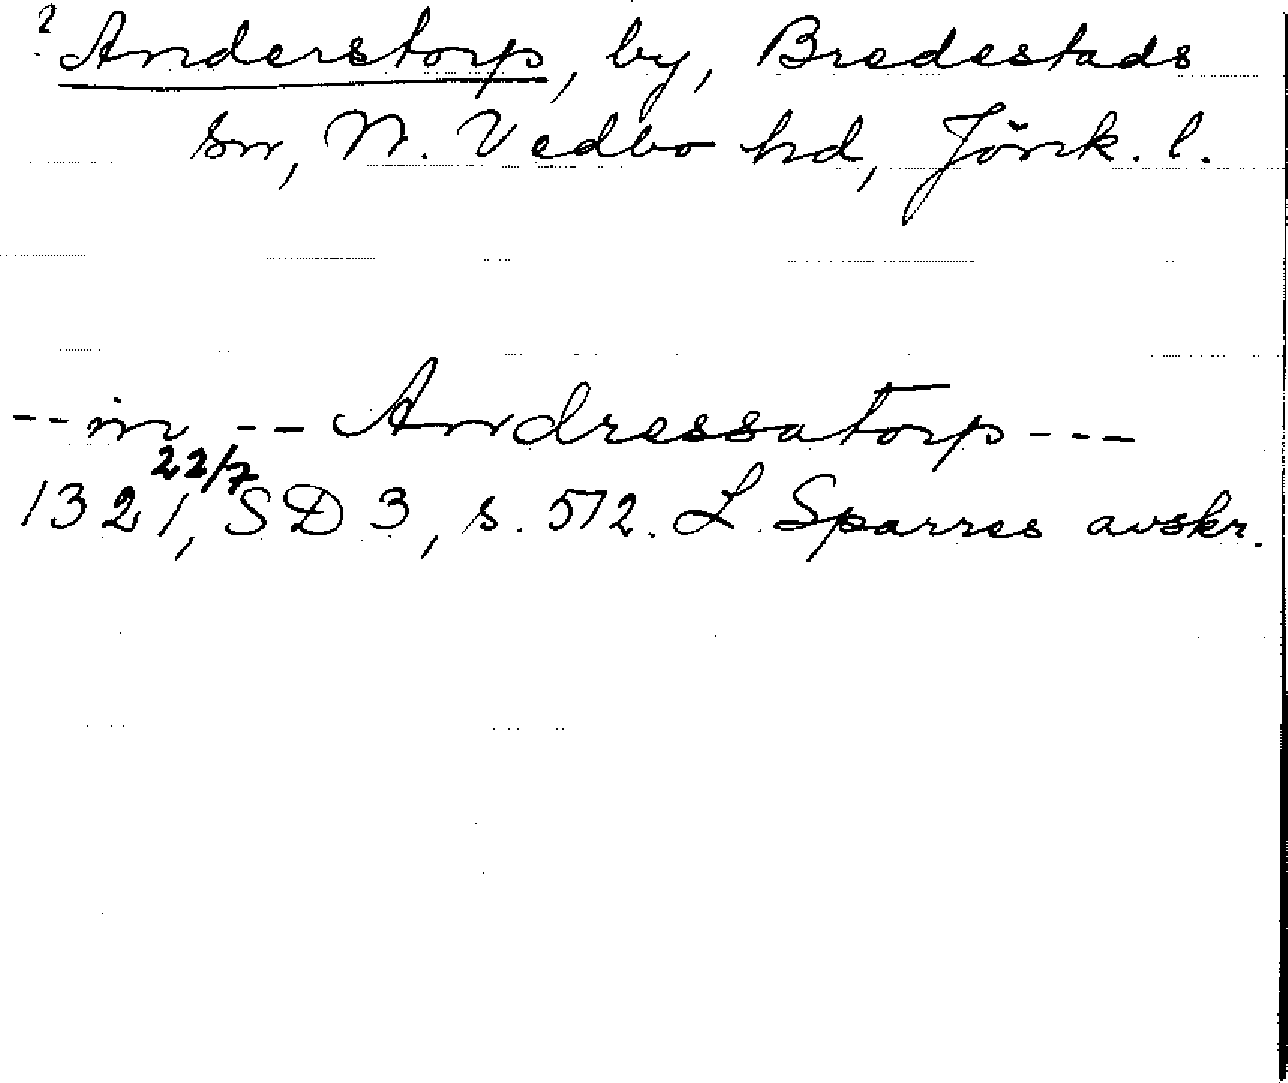 ? Anderstorp, by, Bredestads
sn, N. Vedbo hd, Jönk. l.
--in -- Andressatorp ---
1321 22/7, SD 3, s. 512. L. Sparres avskr.